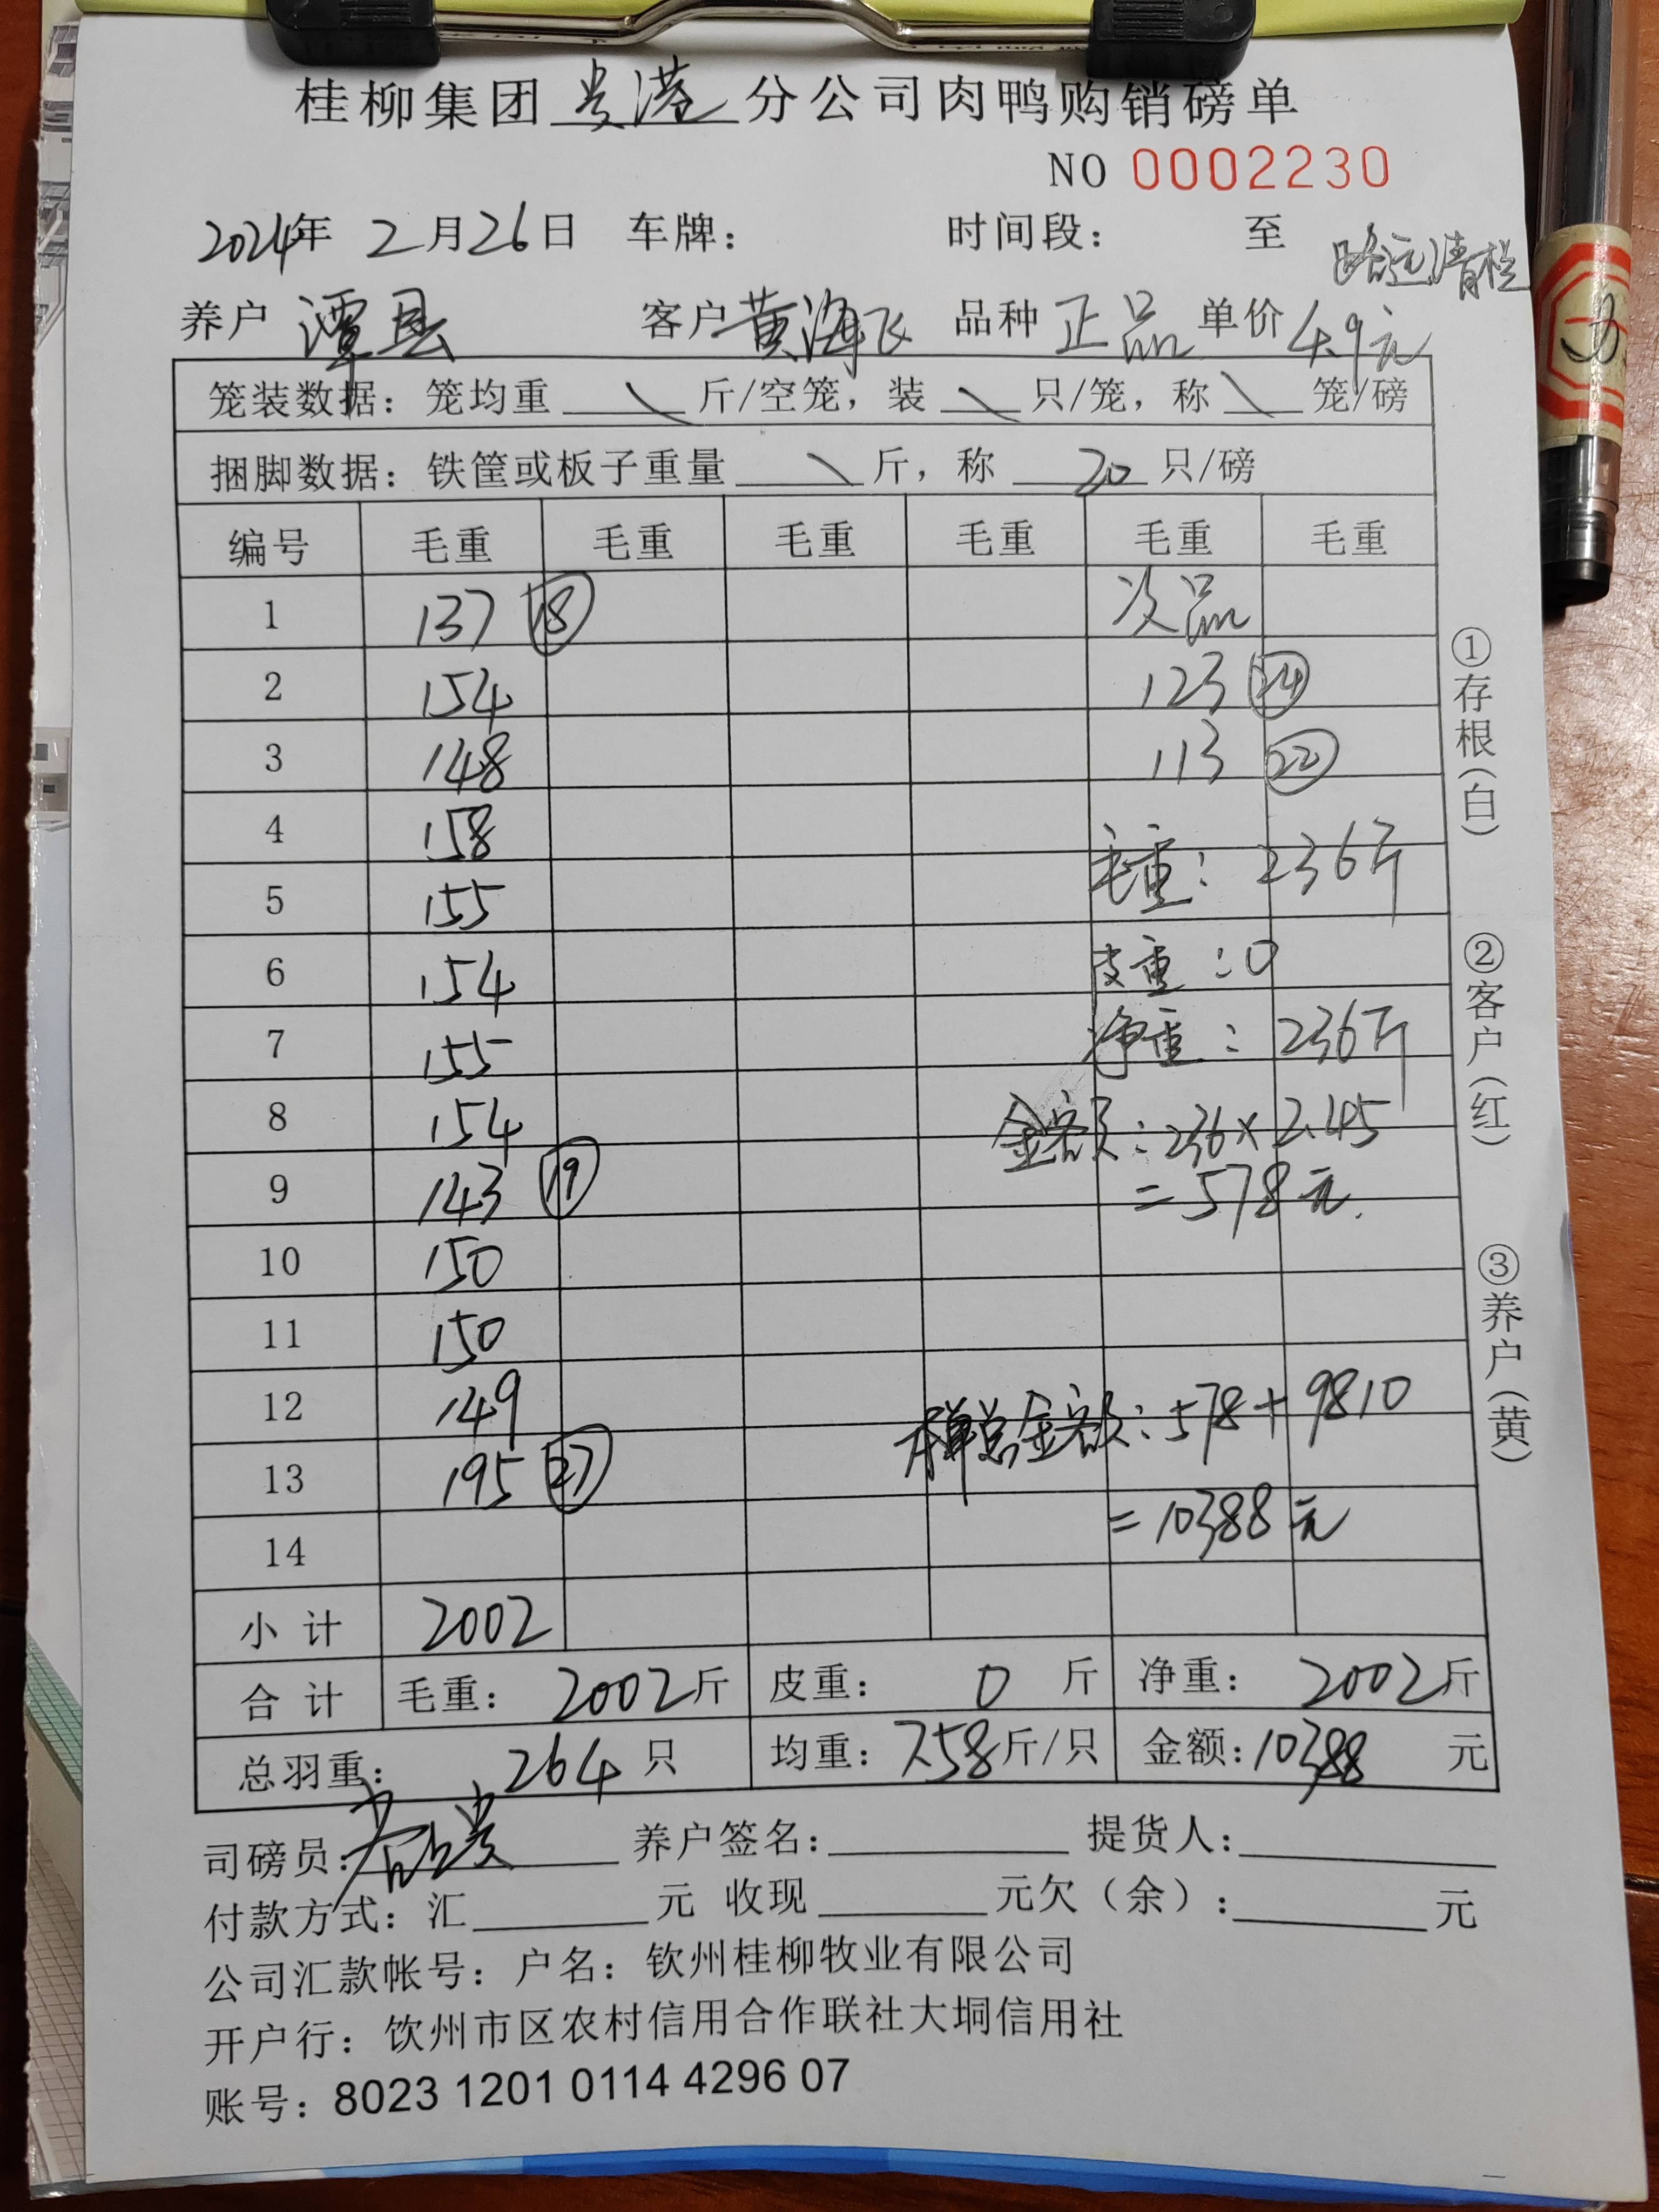 桂柳集团贵港分公司肉鸭购销磅单
NO 0002230
2024年 2月26日 车牌： 时间段： 至
路远清栏
养户 潭县 客户 黄海飞 品种 正品 单价 4.9元
笼装数据：笼均重 \ 斤/空笼，装 \ 只/笼，称 \ 笼/磅
捆脚数据：铁筐或板子重量 \ 斤，称 20 只/磅
编号 毛重 毛重 毛重 毛重 毛重 毛重
1 137 18 次品
2 154 123 24
3 148 113 22
4 158
毛重：236斤
5 155
6 154 皮重：0
7 155 净重：236斤
8 154 金额：236×2.45
9 143 19 =578元.
10 150
11 150
12 149 本单总金额：578+9810
13 195 27
=10388元
14
小计 2002
合计 毛重：2002斤 皮重：0斤 净重：2002斤
总羽重：264只 均重：7.58斤/只 金额：10388元
司磅员： 养户签名： 提货人：
付款方式：汇 元 收现 元欠（余）： 元
公司汇款帐号：户名：钦州桂柳牧业有限公司
开户行：钦州市区农村信用合作联社大垌信用社
账号：8023 1201 0114 4296 07
①存根（白）
②客户（红）
③养户（黄）